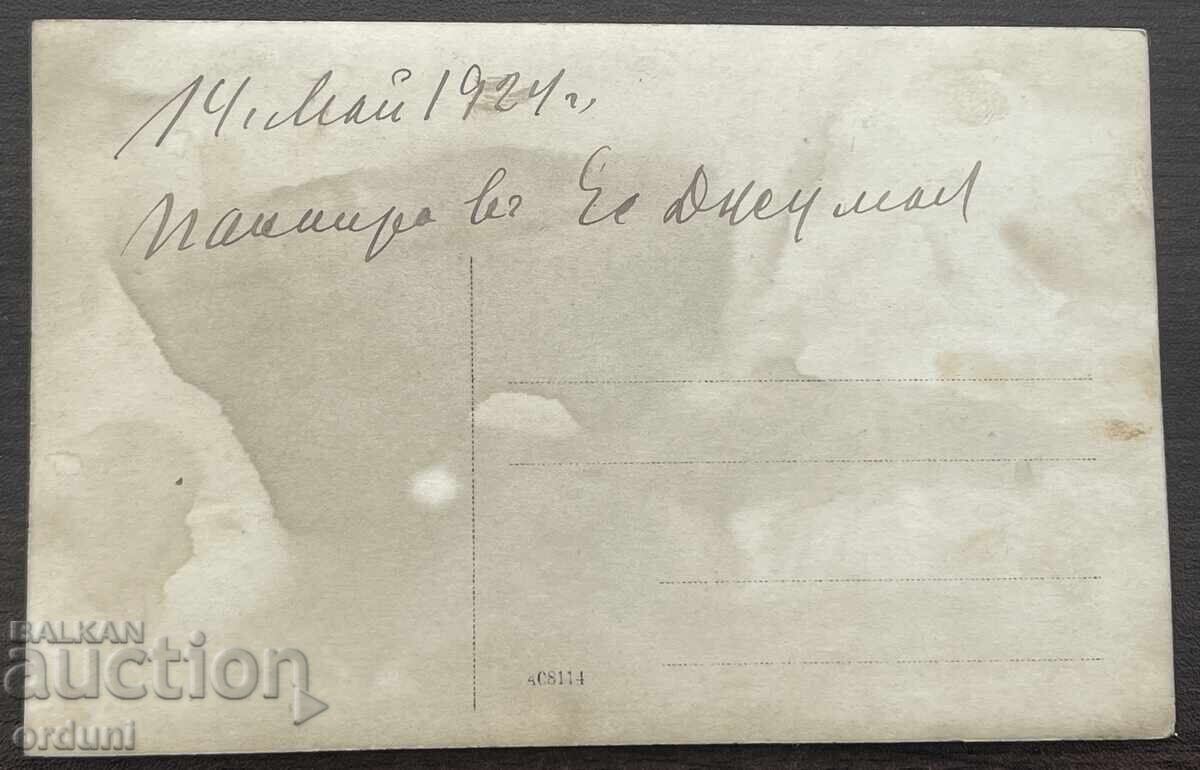 14, Май 1924 г,
Панаира въ Ес Джумая
AC8114
BALKAN
auction
orduni